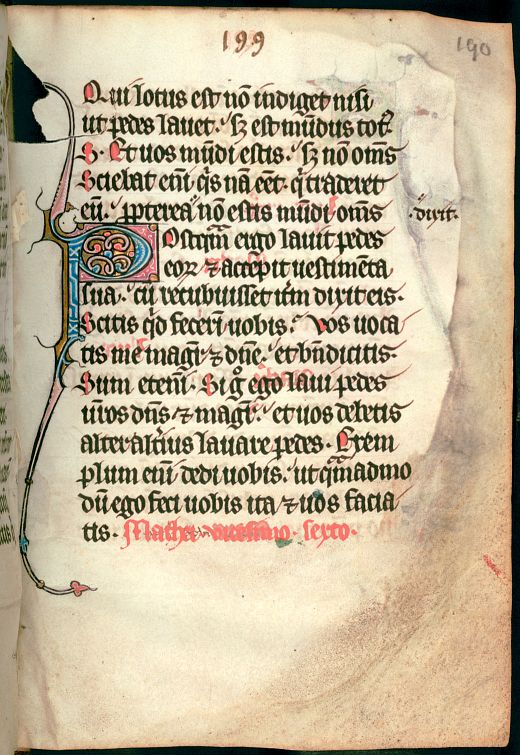 199
190
Qui lotus est nō indiget nisi
ut pedes lauet. sȝ est mūdus tot9.
Et uos mūdi estis. sȝ nō om̄s
Sciebat eni᷒ q̇s nā eēt. q̇ traderet
eū. ppterea nō estis mūdi om̄s
.dixit.
Postqm̄ ergo lauit pedes
eoꝝ ⁊ accepit uestimēta
sua. cū recubuisset itm̄ dixit eis.
Scitis qd fecerī uobis. Vos uoca
tis me magr̄. ⁊ dn̄e. et bn̄ dicitis.
Sum etenī. Si gͦ ego laui pedes
ur̄os dn̄s ⁊ magr̄. et uos debetis
alter altīus lauare pedes. Exem
plum enī dedi uobis. ut qm̄admo
dū ego feci uobis ita ⁊ uos facia
tis. Matheū uicesimo sexto.